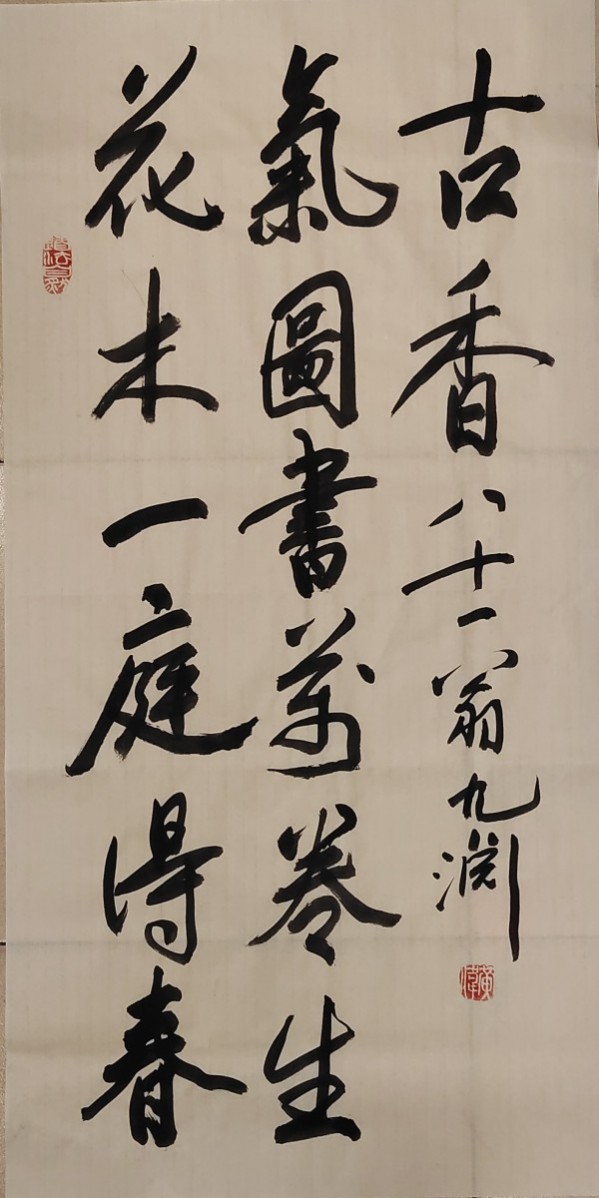 花木一庭得春
氣圖書萬卷生
古香 八十一翁九渊